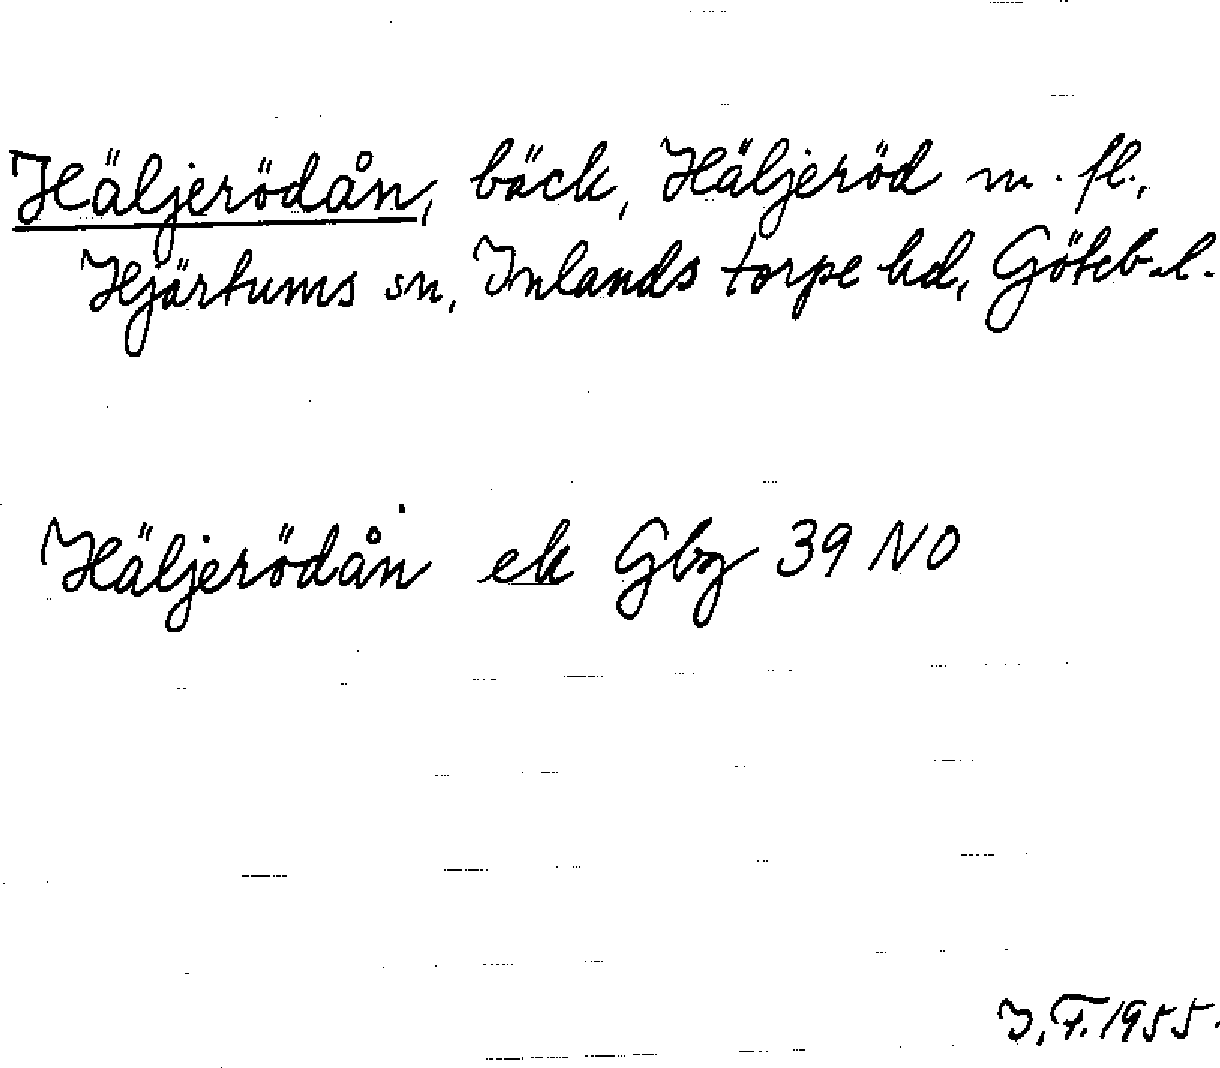 Häljerödån, bäck, Häljeröd m. fl.,
Hjärtums sn, Inlands torpe hd, Göteb. l.
Häljerödån ek Gbg 39 NO
I. F. 1955.